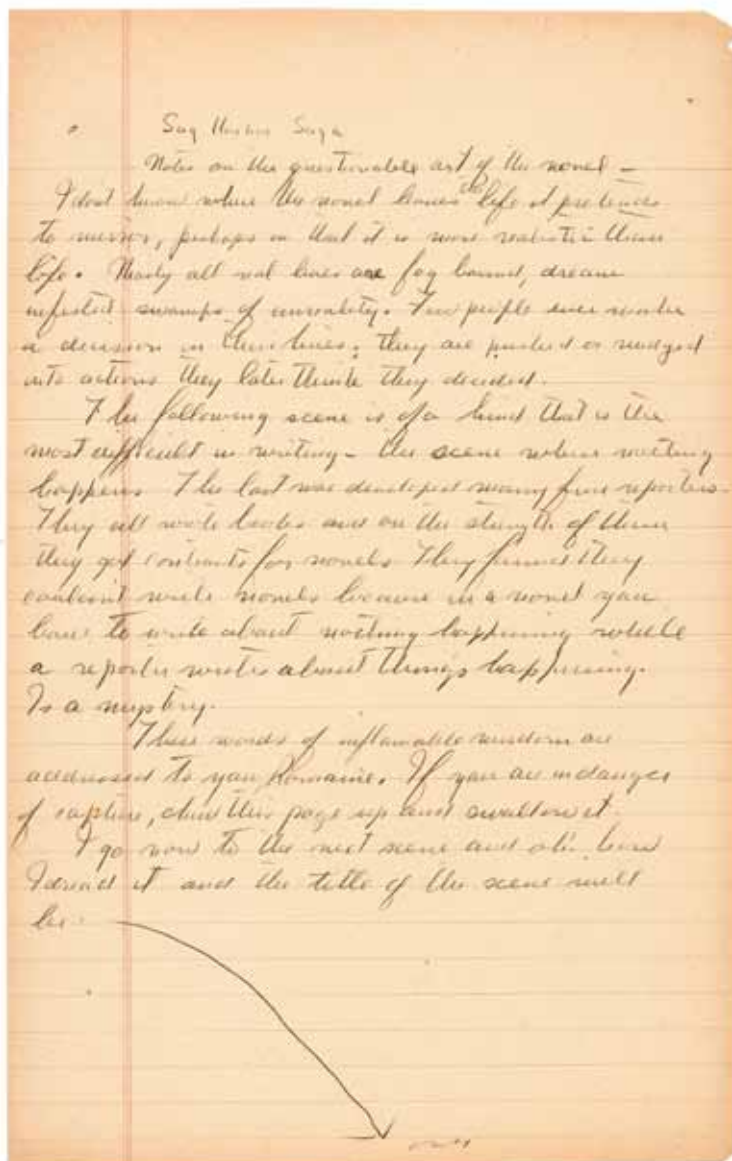 Sag Harbor Saga
Notes on the questionable art of the novel –
I dont know where the novel leaves the life it pretends
to mirror, perhaps in that it is more realistic than
life. Nearly all real lives are fog bound, dream
infested swamps of unreality. Few people ever make
a decision in their lives; they are pushed or nudged
into actions they later think they decided.
The following scene is of a kind that is the
most difficult in writing – the scene where nothing
happens. The last war developed many fine reporters.
They all wrote books and on the strength of them
they got contracts for novels. They found they
couldnt write novels because in a novel you
have to write about nothing happening while
a reporter writes about things happening.
Is a mystery.
These words of inflamable wisdom are
addressed to you Romaine. If you are in danger
of capture, chew this page up and swallow it.
I go now to the next scene and oh! how
I dread it and the title of the scene will
be.